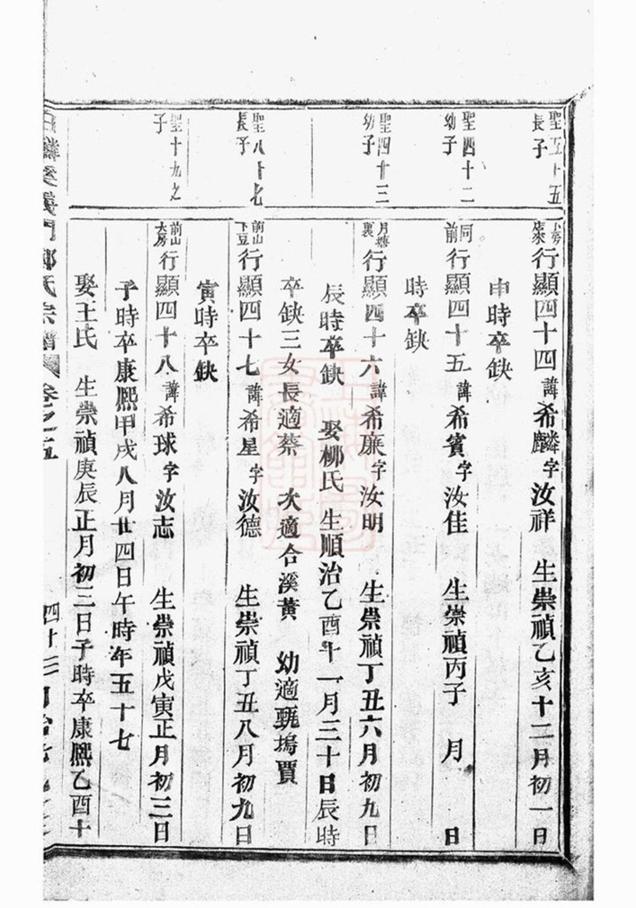 聖五十五
長子
聖四十二
幼子
聖四十三
幼子
聖八十七
長子
聖十九之
子
行顯四十四諱希麟字汝祥 生崇禎乙亥十二月初一日
申時卒缺
同前行顯四十五諱希賓字汝佳 生崇禎丙子 月 日
時卒缺
月塘裏行顯四十六諱希廉字汝明 生崇禎丁丑六月初九日
辰時卒缺 娶柳氏 生順治乙酉十一月三十日辰時
卒缺三女長適蔡 次適合溪黃 幼適 塢賈
前山下豆行顯四十七諱希星字汝德 生崇禎丁丑八月初九日
寅時卒缺
前山大房行顯四十八諱希球字汝志 生崇禎戊寅正月初三日
子時卒康熙甲戌八月廿四日午時年五十七
娶王氏 生崇禎庚辰正月初三日子時卒康熙乙酉十
麟溪義門鄭氏宗譜 卷之五
四十三